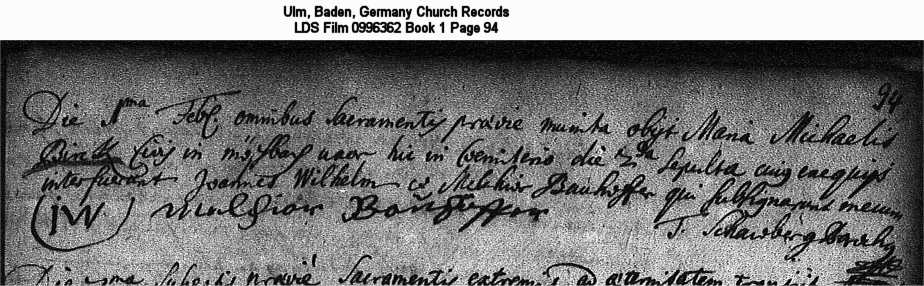 Ulm, Baden, Germany Church Records
LDS Film 0996362 Book 1 Page 94
94
Die 1ma Feb. omnibus Sacramentis prævie munita obijt Maria Michaelis
Civis in uxor hic in Coemiterio die 2da Sepulta cuius exequijs
interfuerunt Joannes Wilhelm et Melchior Bauhöffer qui subsignarunt mecum
(JW) Melchior Bauhöffer
Die Sacramentis extremis ad æternitatem